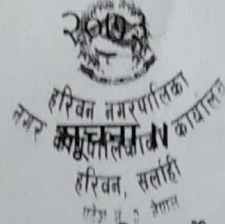 २०७३
हरिवन नगरपालिका
नगर कार्यपालिकाको कार्यालय
सूचना ।।
हरिवन, सर्लाही
प्रदेश नं २ नेपाल